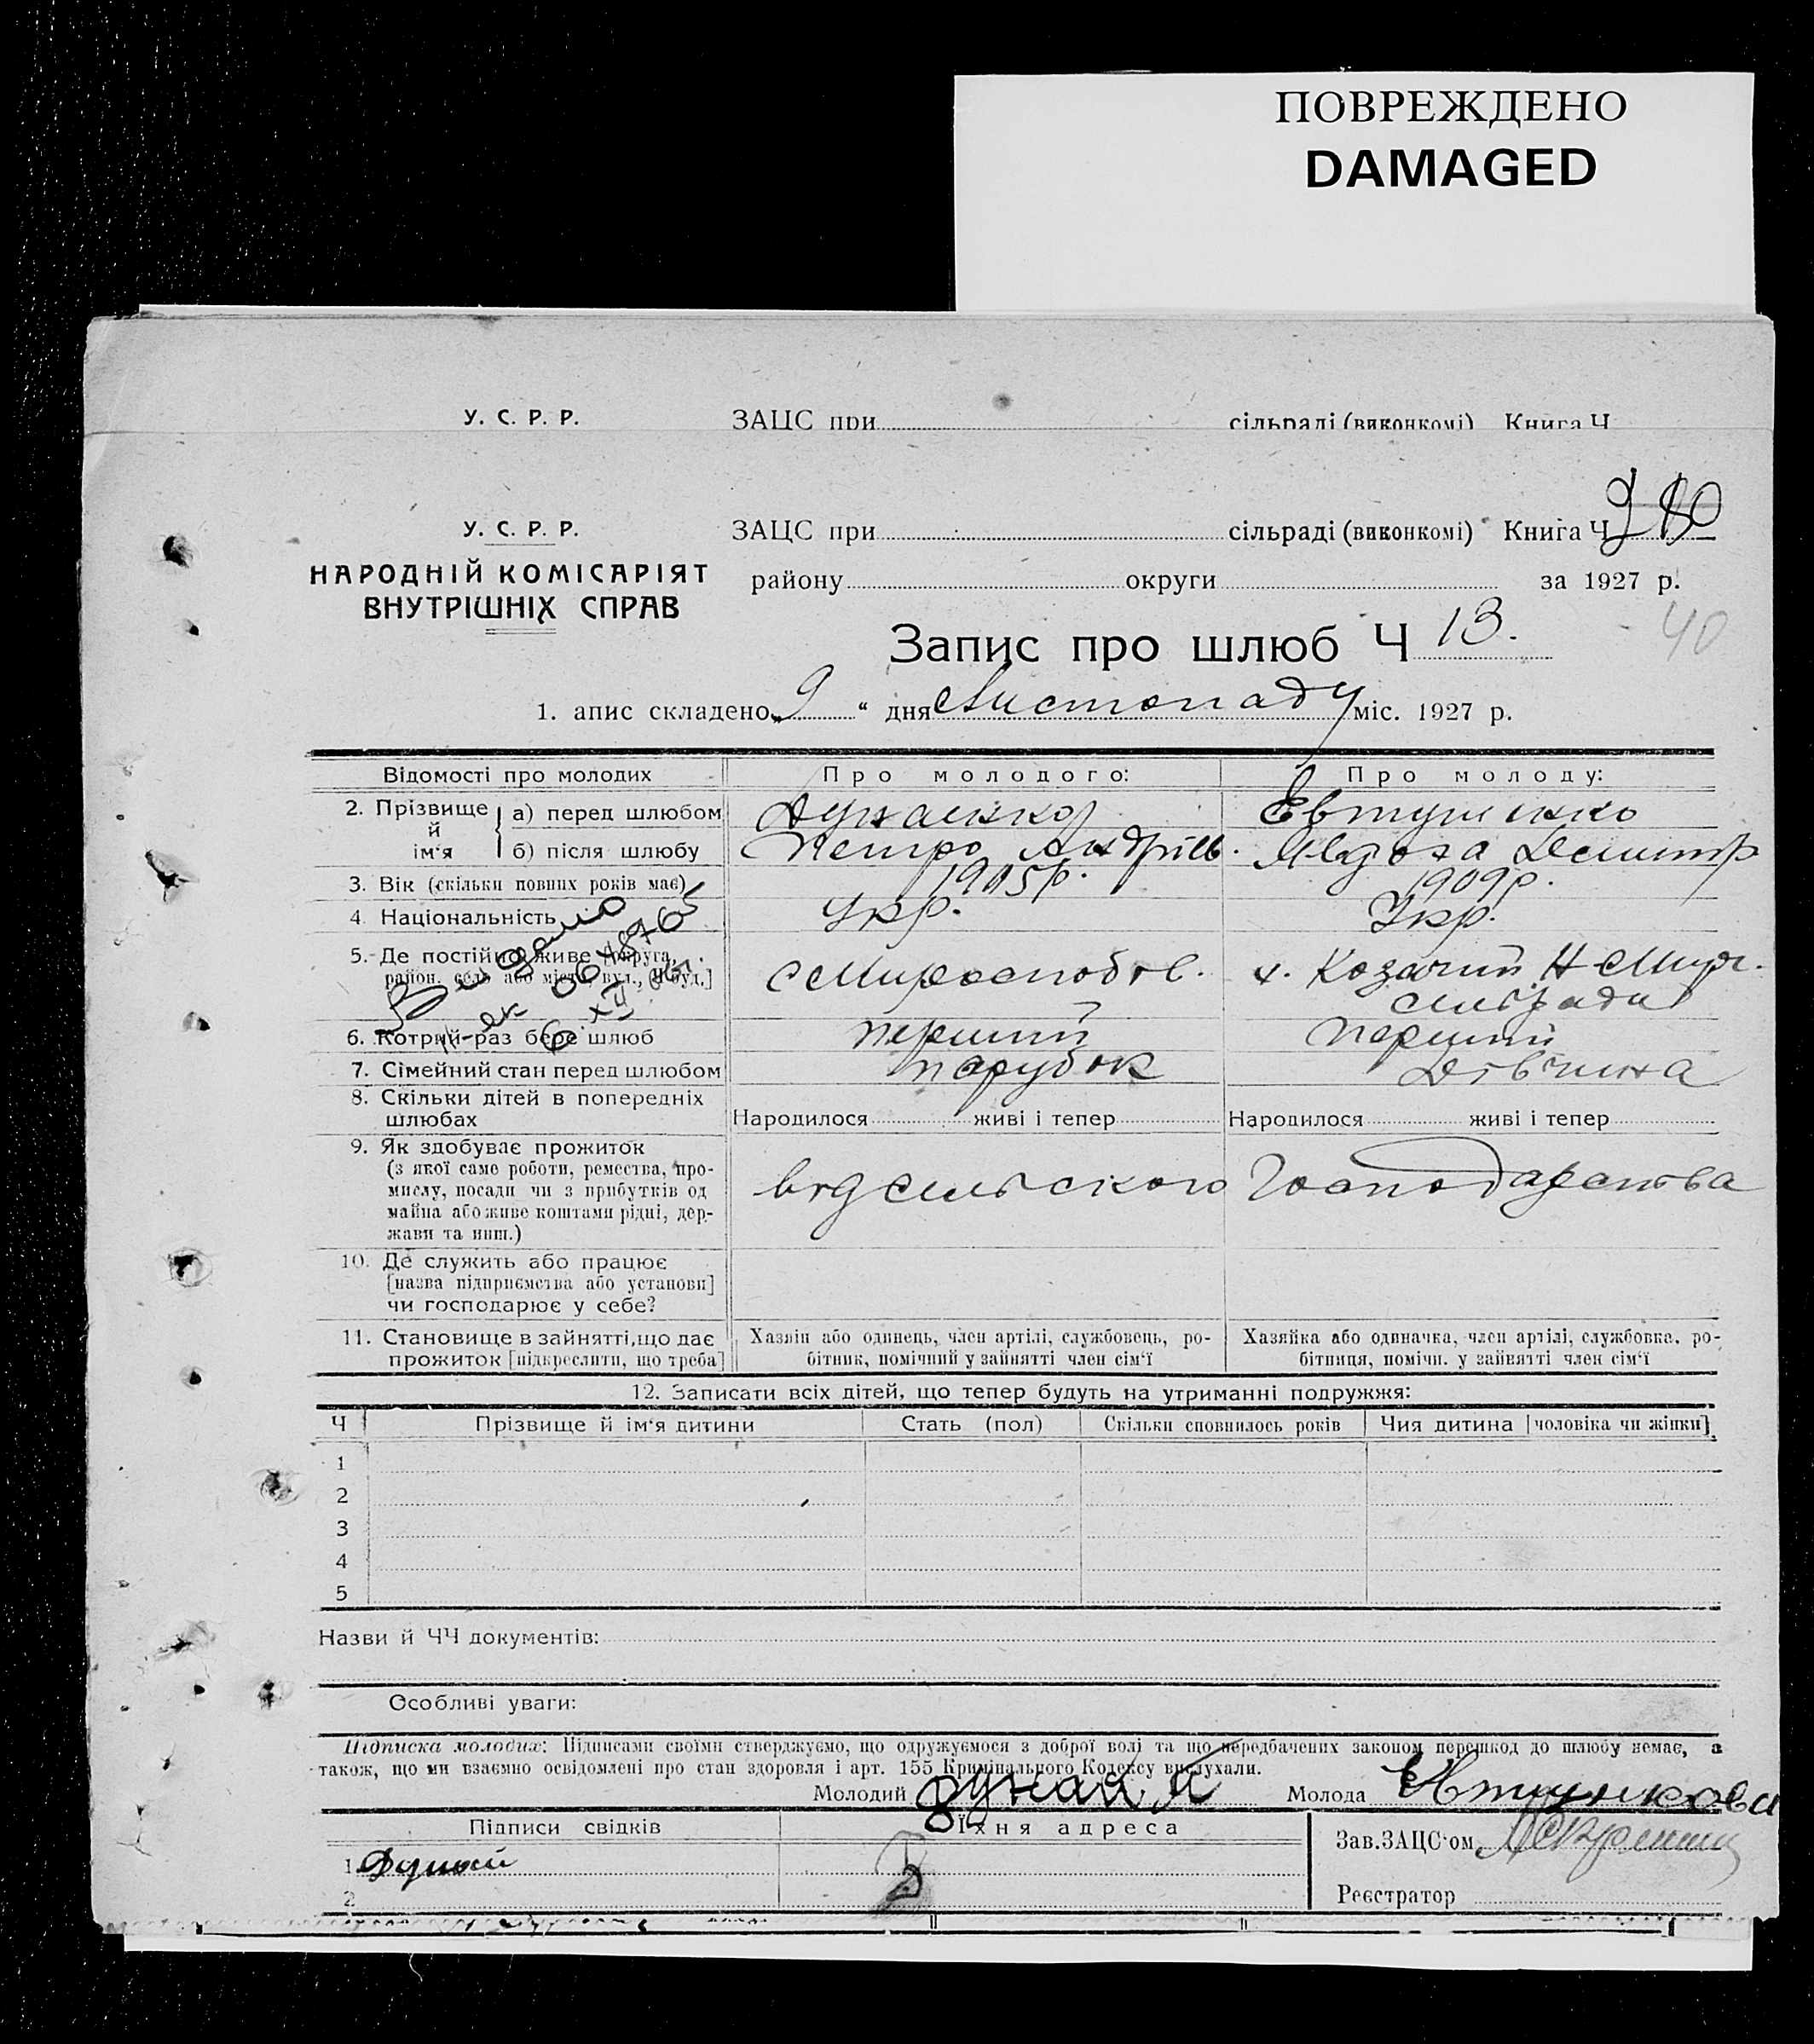 ПОВРЕЖДЕНО
DAMAGED
У. С. Р. Р. ЗАЦС при сільраді (виконкомі) Книга Ч
У. С. Р. Р. ЗАЦС при сільраді (виконкомі) Книга Ч
НАРОДНІЙ КОМІСАРІЯТ
ВНУТРІШНІХ СПРАВ
району округи за 1927 р.
Запис про шлюб Ч 13.
40
1. апис складено „9“ дня Листопаду міс. 1927 р.
Відомості про молодих Про молодого: Про молоду:
2. Прізвище й ім‘я
а) перед шлюбом Евтушенко
б) після шлюбу Петро Андрієв. Явдоха Демитр
3. Вік (скільки повних років має) 1905р. 1909р.
4. Національність Укр. Укр.
5. Де постійно живе [округа, район, село або місто, вул., Ч буд.] х. Козачий Н
Видано
як
6. Котрий раз бере шлюб перший перший
7. Сімейний стан перед шлюбом парубок дівчина
8. Скільки дітей в попередніх шлюбах Народилося живі і тепер Народилося живі і тепер
9. Як здобуває прожиток
(з якої саме роботи, ремества, про-
мислу, посади чи з прибутків од
майна або живе коштами рідні, дер-
жави та инш.)
від сільського Господарства
10. Де служить або працює
[назва підприємства або установи]
чи господарює у себе?
11. Становище в зайнятті, що дає
прожиток [підкреслити, що треба]
Хазяїн або одинець, член артілі, службовець, ро-
бітник, помічний у зайнятті член сім‘ї
Хазяйка або одиначка, член артілі, службовка, ро-
бітниця, помічн. у зайнятті член сім‘ї
12. Записати всіх дітей, що тепер будуть на утриманні подружжя:
Ч Прізвище й ім‘я дитини Стать (пол) Скільки сповнилось років Чия дитина [чоловіка чи жінки]
1
2
3
4
5
Назви й ЧЧ документів:
Особливі уваги:
Підписка молодих: Підписами своїми стверджуємо, що одружуємося з доброї волі та що передбачених законом перешкод до шлюбу немає, а
також, що ми взаємно освідомлені про стан здоровля і арт. 155 Кримінального Кодексу вислухали.
Молодий Молода
Підписи свідків Їхня адреса Зав. ЗАЦС‘ом
1
2 Реєстратор